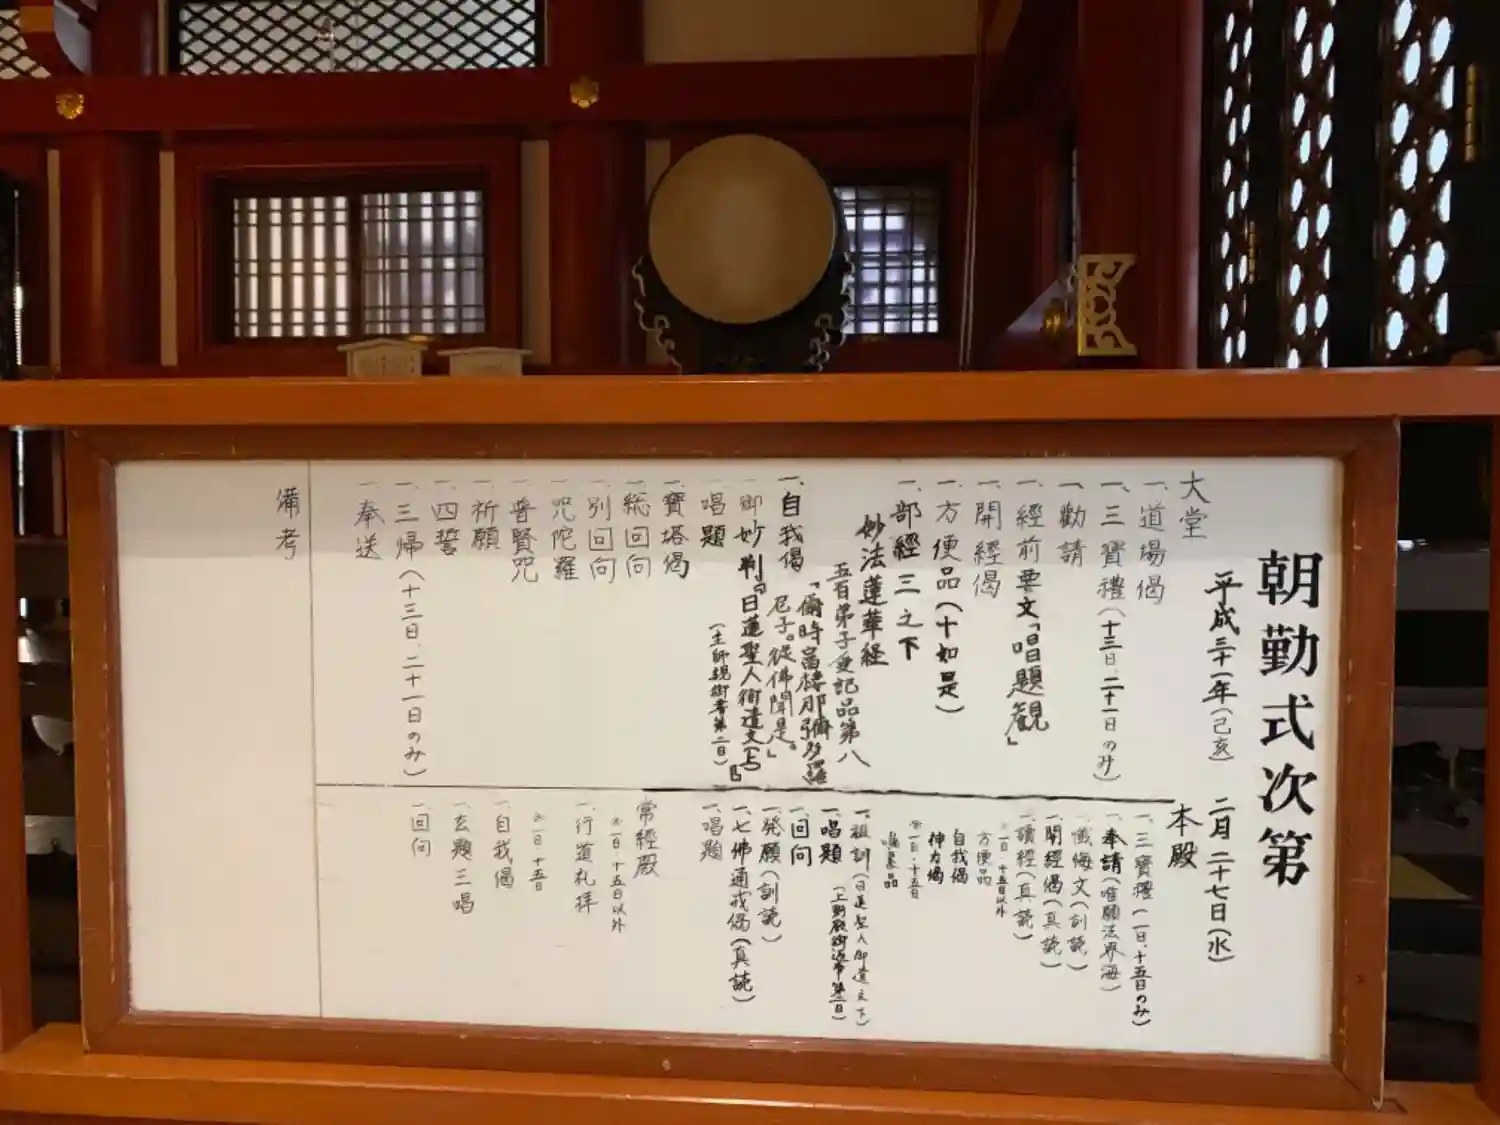 朝勤式次第
平成三十一年(己亥) 二月二十七日(水)
大堂
一、道場偈
一、三寶禮(十三日、二十一日のみ)
一、勸請
一、經前要文「唱題観」
一、開經偈
一、方便品(十如是)
一、部經三之下
妙法蓮華経
五百弟子受記品第八
「爾時富樓那彌多羅
尼子。從佛聞是。」
一、自我偈
一、御妙判『日蓮聖人御遺文』
一、唱題
一、寶塔偈
一、総回向
一、別回向
一、咒陀羅
一、普賢咒
一、祈願
一、四誓
一、三帰(十三日、二十一日のみ)
一、奉送
本殿
一、三寶禮(一日、十五日のみ)
一、奉請(唯願法界海)
一、懺悔文(訓読)
一、開經偈(真読)
一、讀經(真読)
※一日・十五日以外
方便品
自我偈
神力偈
※一日・十五日
一、祖訓(日蓮聖人御遺文下)
一、唱題
一、回向
一、発願(訓読)
一、七佛通戒偈(真読)
一、唱題
常經殿
※一日・十五日以外
一、行道礼拝
※一日・十五日
一、自我偈
一、玄題三唱
一、回向
備考